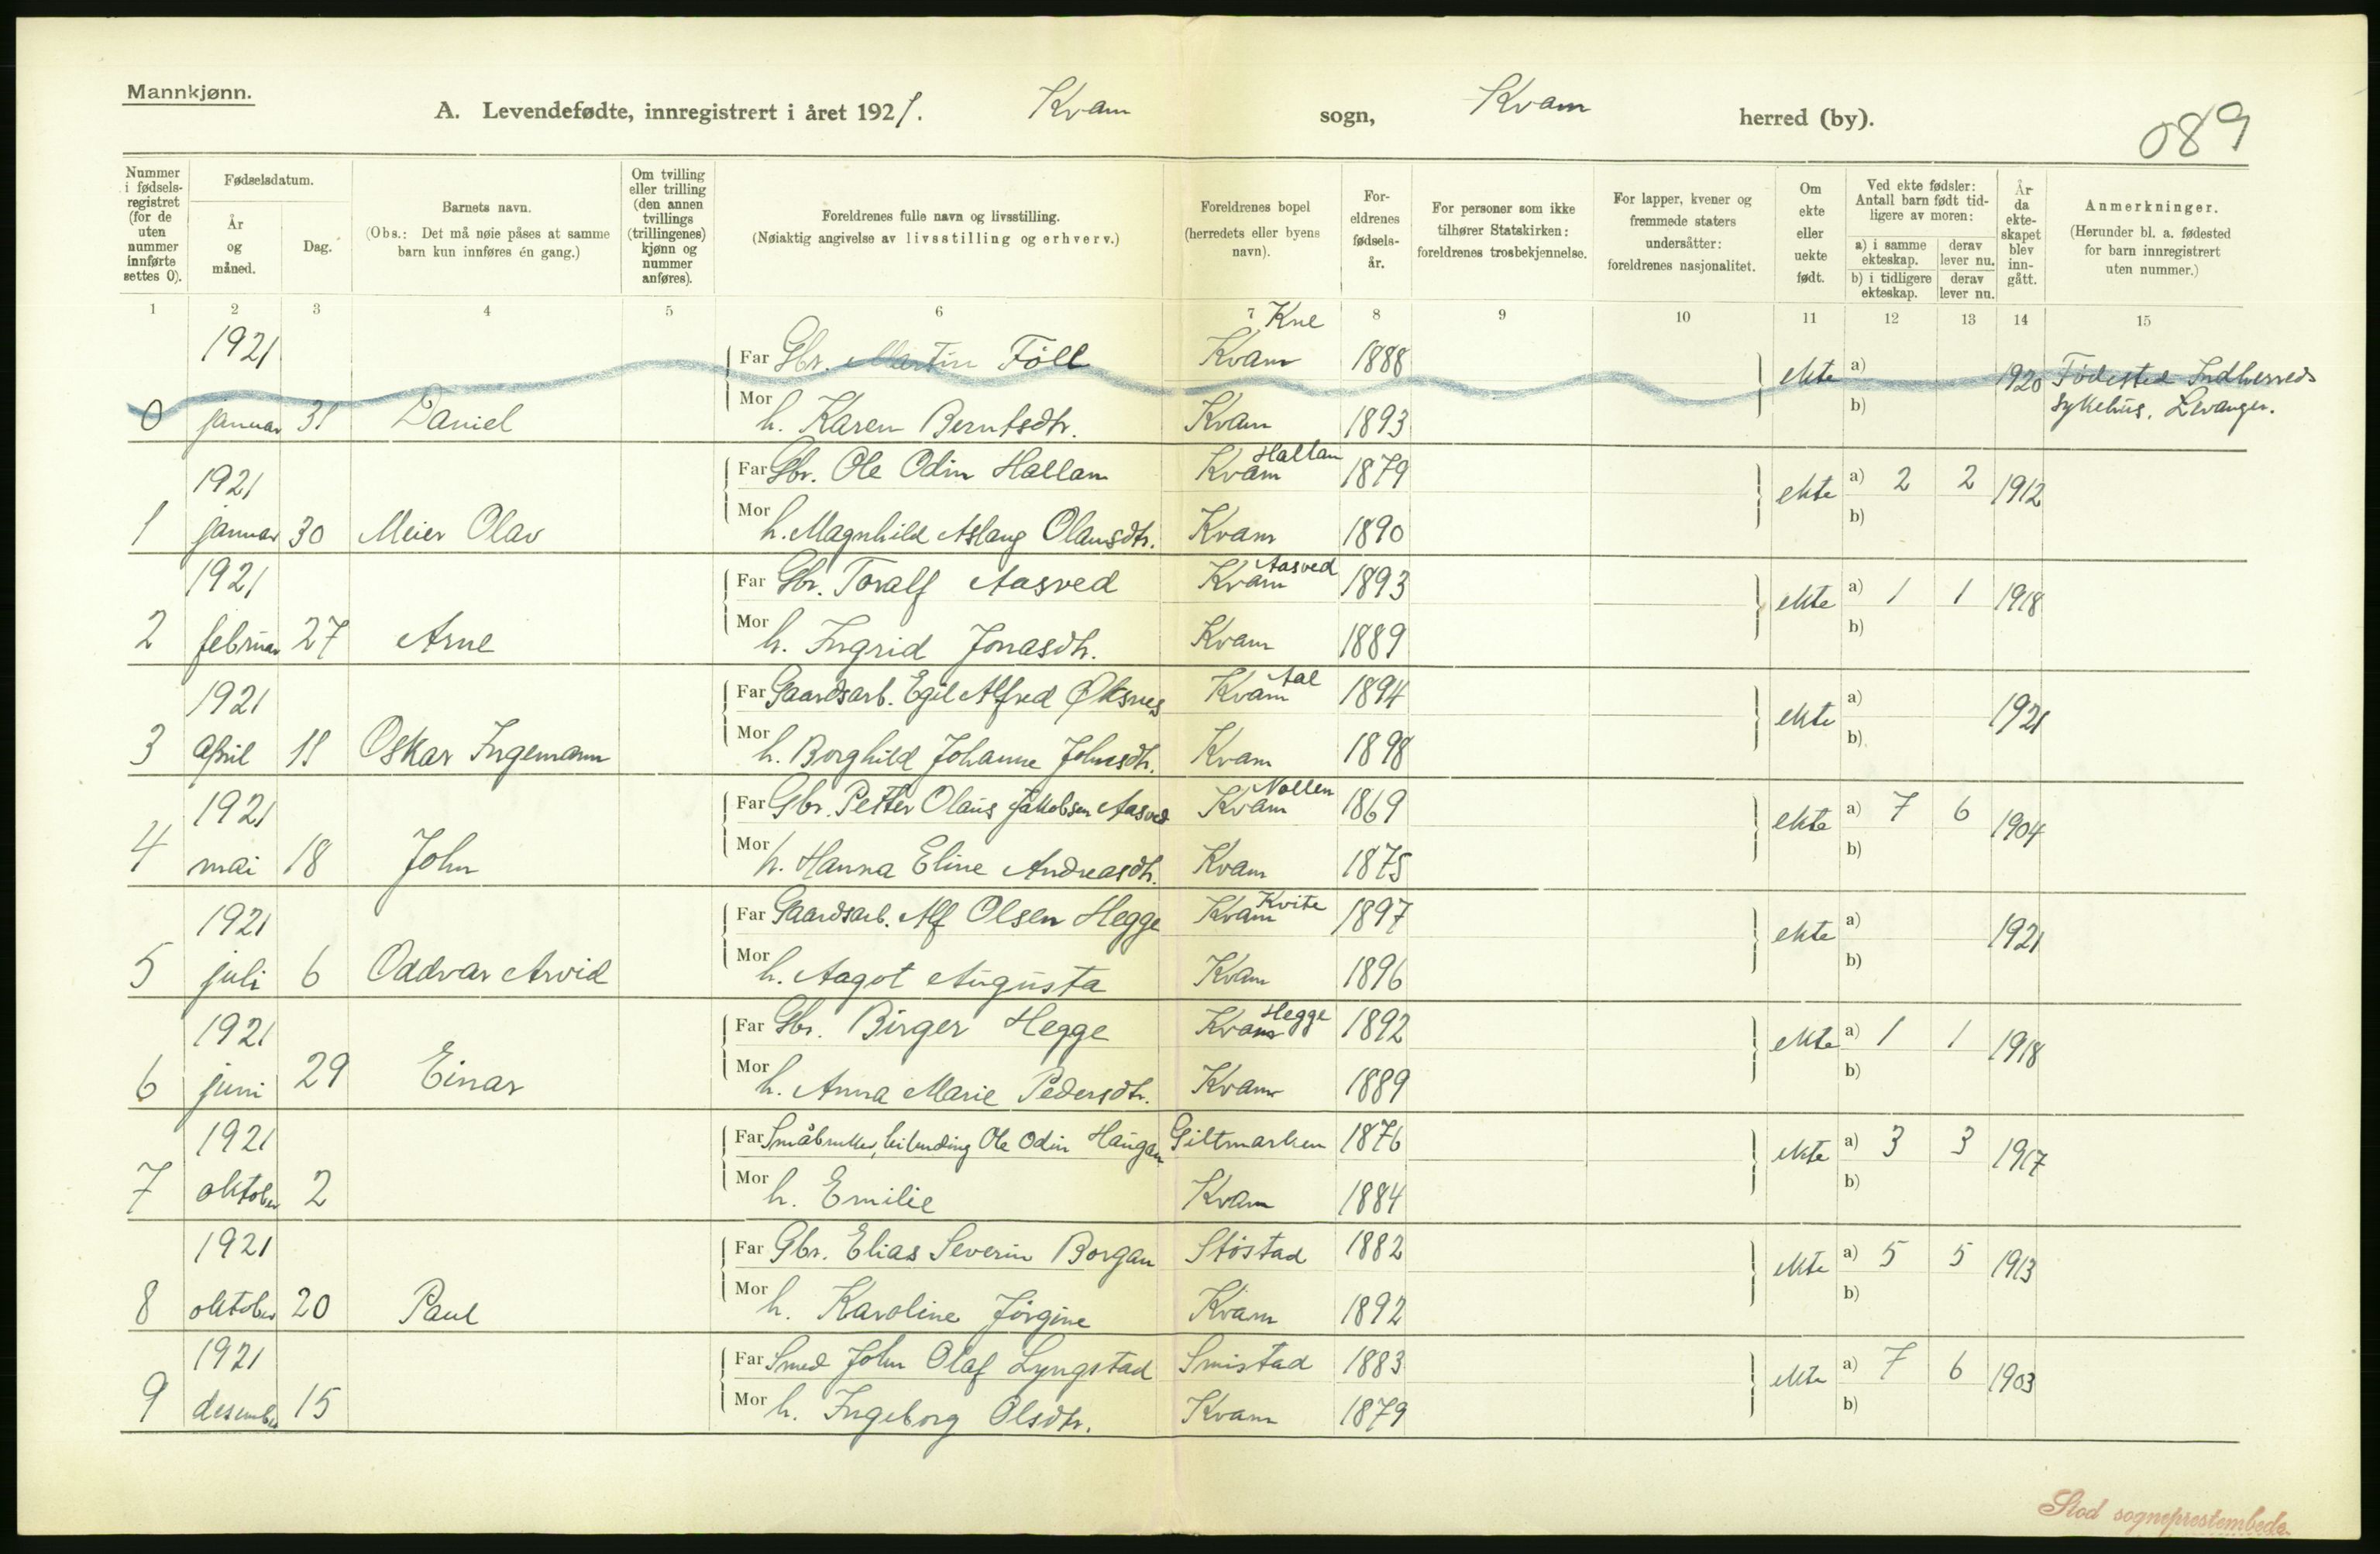 Mannkjønn.
A. Levendefødte, innregistrert i året 1921. Kvam sogn, Kvam herred (by).
089
Nummer i fødsels-registret (for de uten nummer innførte settes 0).
Fødselsdatum.
År og måned.
Dag.
Barnets navn.
(Obs.: Det må nøie påses at samme barn kun innføres én gang.)
Om tvilling eller trilling (den annen tvillings (trillingenes) kjønn og nummer anføres).
Foreldrenes fulle navn og livsstilling.
(Nøiaktig angivelse av livsstilling og erhverv.)
Foreldrenes bopel (herredets eller byens navn).
For-eldrenes fødsels-år.
For personer som ikke tilhører Statskirken: foreldrenes trosbekjennelse.
For lapper, kvener og fremmede staters undersåtter: foreldrenes nasjonalitet.
Om ekte eller uekte født.
Ved ekte fødsler: Antall barn født tid-ligere av moren:
a) i samme ekteskap. derav lever nu.
b) i tidligere ekteskap. derav lever nu.
År da ekte-skapet blev inn-gått.
Anmerkninger.
(Herunder bl. a. fødested for barn innregistrert uten nummer.)
1 2 3 4 5 6 7 8 9 10 11 12 13 14 15
1921 Far Gbr. Martin Föll Kvam 1888 ekte a) 1920 Fødested Indherreds
0 januar 31 Daniel Mor h. Karen Berntsdtr. Kvam 1893 b) sykehus, Levanger.
1921 Far Gbr. Ole Odin Hallam Kvam Hallan 1879 ekte a) 2 2 1912
1 januar 30 Meier Olav Mor h. Magnhild Aslaug Olausdtr. Kvam 1890 b)
1921 Far Gbr. Toralf Aasved Kvam Aasved 1893 ekte a) 1 1 1918
2 februar 27 Arne Mor h. Ingrid Jonasdtr. Kvam 1889 b)
1921 Far Gaardsarb. Egil Alfred Øksnes Kvam Aal 1894 ekte a) 1921
3 april 11 Oskar Ingemann Mor h. Borghild Johanne Johnsdtr. Kvam 1898 b)
1921 Far Gbr. Petter Olaus Jakobsen Aasved Kvam Vollen 1869 ekte a) 7 6 1904
4 mai 18 John Mor h. Hanna Eline Andreasdtr. Kvam 1875 b)
1921 Far Gaardsarb. Alf Olsen Hegge Kvam Kvite 1897 ekte a) 1921
5 juli 6 Oddvar Arvid Mor h. Aagot Augusta Kvam 1896 b)
1921 Far Gbr. Birger Hegge Kvam Hegge 1892 ekte a) 1 1 1918
6 juni 29 Einar Mor h. Anna Marie Pedersdtr. Kvam 1889 b)
1921 Far Småbruker, Ole Odin Haugan Giltmarken 1876 ekte a) 3 3 1917
7 oktober 2 Mor h. Emilie Kvam 1884 b)
1921 Far Gbr. Elias Severin Borgan Støstad 1882 ekte a) 5 5 1913
8 oktober 20 Paul Mor h. Karoline Jörgine Kvam 1892 b)
1921 Far Smed John Olaf Lyngstad Smistad 1883 ekte a) 7 6 1903
9 desember 15 Mor h. Ingeborg Olsdtr. Kvam 1879 b)
Stod sogneprestembede.